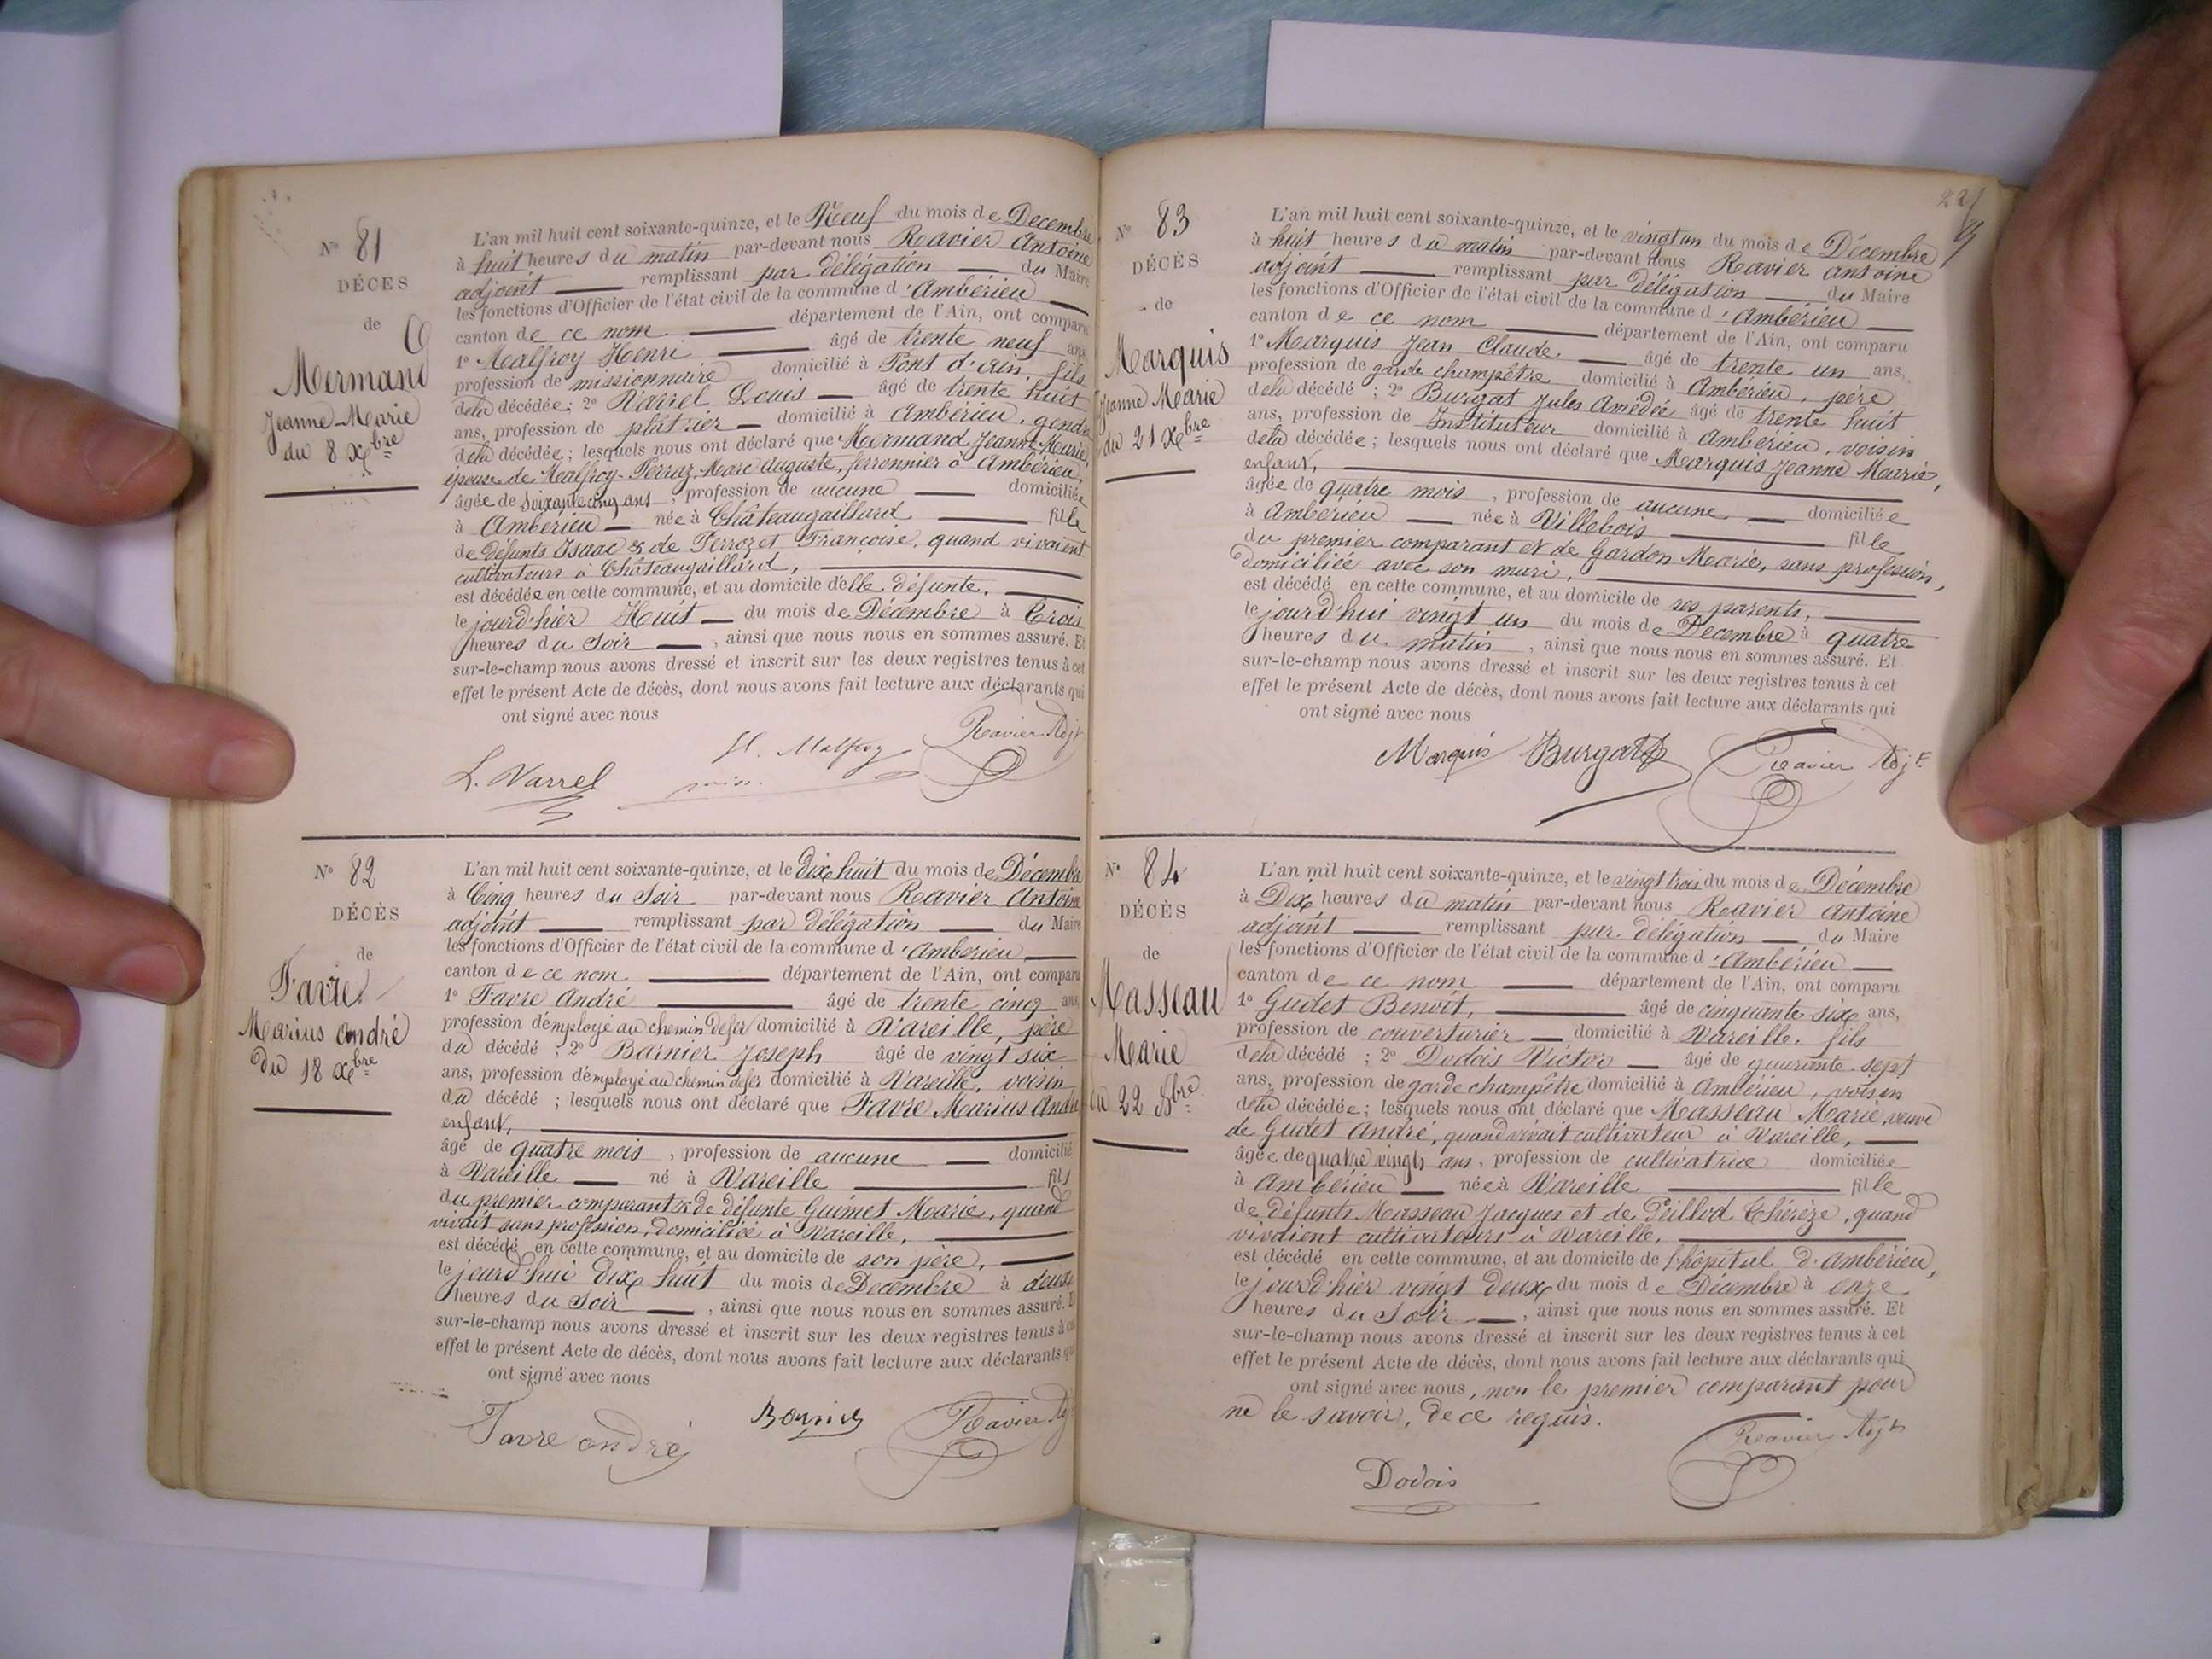 N° 81
DÉCES
de
Mermand
Jeanne-Marie
du 8 Xbre
L'an mil huit cent soixante-quinze, et le Neuf du mois de Décembre
à huit heures du matin par-devant nous Ravier Antoine
adjoint remplissant par délégation du Maire
les fonctions d'Officier de l'état civil de la commune d'Ambérieu
canton de ce nom département de l'Ain, ont comparu
1° Malfroy Henri âgé de trente neuf ans,
profession de missionnaire domicilié à Pont d'ain, fils
de la décédée; 2° Varrel Louis âgé de trente huit
ans, profession de plâtrier domicilié à Ambérieu, gendre
de la décédée; lesquels nous ont déclaré que Mermand Jeanne-Marie,
épouse de Malfroy-Ferraz Marc Auguste, ferronnier à Ambérieu,
âgée de soixante cinq ans, profession de aucune domiciliée
à Ambérieu née à Châteaugaillard fille
de défunts Isaac & de Perrozet Françoise, quand vivaient
cultivateurs à Châteaugaillard,
est décédée en cette commune, et au domicile d'elle défunte,
le jourd'hier Huit du mois de Décembre à trois
heures du Soir, ainsi que nous nous en sommes assuré. Et
sur-le-champ nous avons dressé et inscrit sur les deux registres tenus à cet
effet le présent Acte de décès, dont nous avons fait lecture aux déclarants qui
ont signé avec nous
L. Varrel H. Malfroy miss. Ravier Adjt
N° 82
DÉCÈS
de
Favre
Marius André
du 18 Xbre
L'an mil huit cent soixante-quinze, et le dix huit du mois de Décembre
à Cinq heures du Soir par-devant nous Ravier Antoine
adjoint remplissant par délégation du Maire
les fonctions d'Officier de l'état civil de la commune d'Ambérieu
canton de ce nom département de l'Ain, ont comparu
1° Favre André âgé de trente cinq ans
profession d'employé au chemin de fer domicilié à Vareille, père
du décédé; 2° Barnier Joseph âgé de vingt six
ans, profession d'employé au chemin de fer domicilié à Vareille, voisin
du décédé; lesquels nous ont déclaré que Favre Marius André
enfant,
âgé de quatre mois, profession de aucune domicilié
à Vareille né à Vareille fils
du premier comparant & de défunte Guimet Marie, quand
vivait sans profession, domiciliée à Vareille,
est décédé en cette commune, et au domicile de son père,
le jourd'hui dix huit du mois de Décembre à deux
heures du Soir, ainsi que nous nous en sommes assuré. Et
sur-le-champ nous avons dressé et inscrit sur les deux registres tenus à cet
effet le présent Acte de décès, dont nous avons fait lecture aux déclarants qui
ont signé avec nous
Favre andré Ravier Adj
N° 83
DÉCÈS
de
Marquis
Jeanne Marie
du 21 Xbre
L'an mil huit cent soixante-quinze, et le vingt un du mois de Décembre
à huit heures du matin par-devant nous Ravier antoine
adjoint remplissant par délégation du Maire
les fonctions d'Officier de l'état civil de la commune d'Ambérieu
canton de ce nom département de l'Ain, ont comparu
1° Marquis Jean Claude âgé de trente un ans,
profession de garde champêtre domicilié à Ambérieu, père
de la décédé; 2° Burgat Jules Amédée âgé de trente huit
ans, profession de Instituteur domicilié à Ambérieu, voisin
de la décédée; lesquels nous ont déclaré que Marquis Jeanne Marie,
enfant,
âgée de quatre mois, profession de aucune domiciliée
à Ambérieu née à Villebois fille
du premier comparant et de Gardon Marie, sans profession,
domiciliée avec son mari,
est décédé en cette commune, et au domicile de ses parents,
le jourd'hui vingt un du mois de Décembre à quatre
heures du matin, ainsi que nous nous en sommes assuré. Et
sur-le-champ nous avons dressé et inscrit sur les deux registres tenus à cet
effet le présent Acte de décès, dont nous avons fait lecture aux déclarants qui
ont signé avec nous
Marquis Burgat Ravier Adjt
N° 84
DÉCÈS
de
Masseau
Marie
du 22 Xbre
L'an mil huit cent soixante-quinze, et le vingt trois du mois de Décembre
à Dix heures du matin par-devant nous Ravier Antoine
adjoint remplissant par délégation du Maire
les fonctions d'Officier de l'état civil de la commune d'Ambérieu
canton de ce nom département de l'Ain, ont comparu
1° Gudet Benoît, âgé de cinquante six ans,
profession de couverturier domicilié à Vareille, fils
de la décédé; 2° Dodois Victor âgé de quarante sept
ans, profession de garde champêtre domicilié à Ambérieu, voisin
de la décédée; lesquels nous ont déclaré que Masseau Marie, veuve
de Gudet André, quand vivait cultivateur à Vareille,
âgée de quatre vingts ans, profession de cultivatrice domiciliée
à Ambérieu née à Vareille fille
de défunts Masseau Jacques et de Peillod Thérèze, quand
vivaient cultivateurs à Vareille,
est décédé en cette commune, et au domicile de l'hôpital d'Ambérieu,
le jourd'hier vingt deux du mois de Décembre à onze
heures du Soir, ainsi que nous nous en sommes assuré. Et
sur-le-champ nous avons dressé et inscrit sur les deux registres tenus à cet
effet le présent Acte de décès, dont nous avons fait lecture aux déclarants qui
ont signé avec nous, non le premier comparant pour
ne le savoir, de ce requis.
Dodois Ravier Adjt